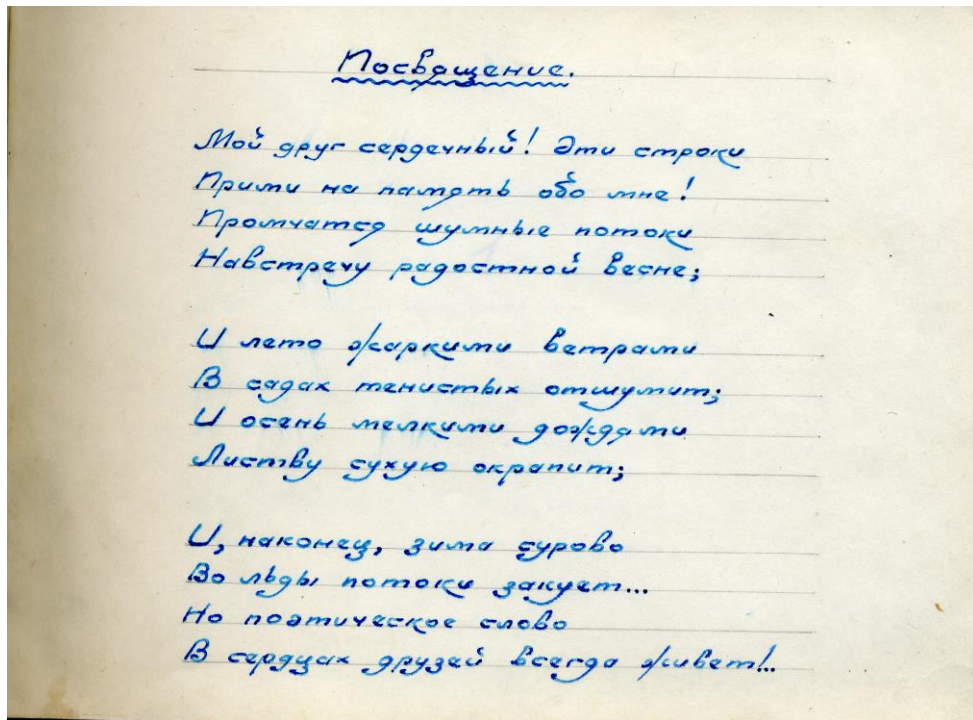 Посвящение.
Мой друг сердечный! Эти строки
Прими на память обо мне!
Промчатся шумные потоки
Навстречу радостной весне;
И лето жаркими ветрами
В садах тенистых отшумит;
И осень мелкими дождями
Листву сухую окрапит;
И, наконец, зима сурово
Во льды потоки закует...
Но поэтическое слово
В сердцах друзей всегда живет!..